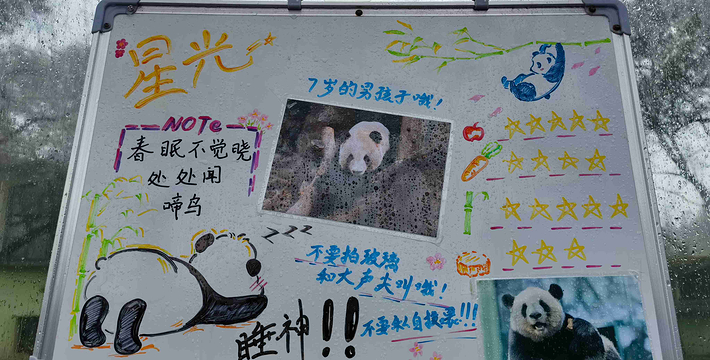 星光
7岁的男孩子哦!
NOTe
春眠不觉晓
处处闻
啼鸟
zzz
不要拍玻璃
和大声夫叫哦!
不要私自投喂!!!
睡神!!